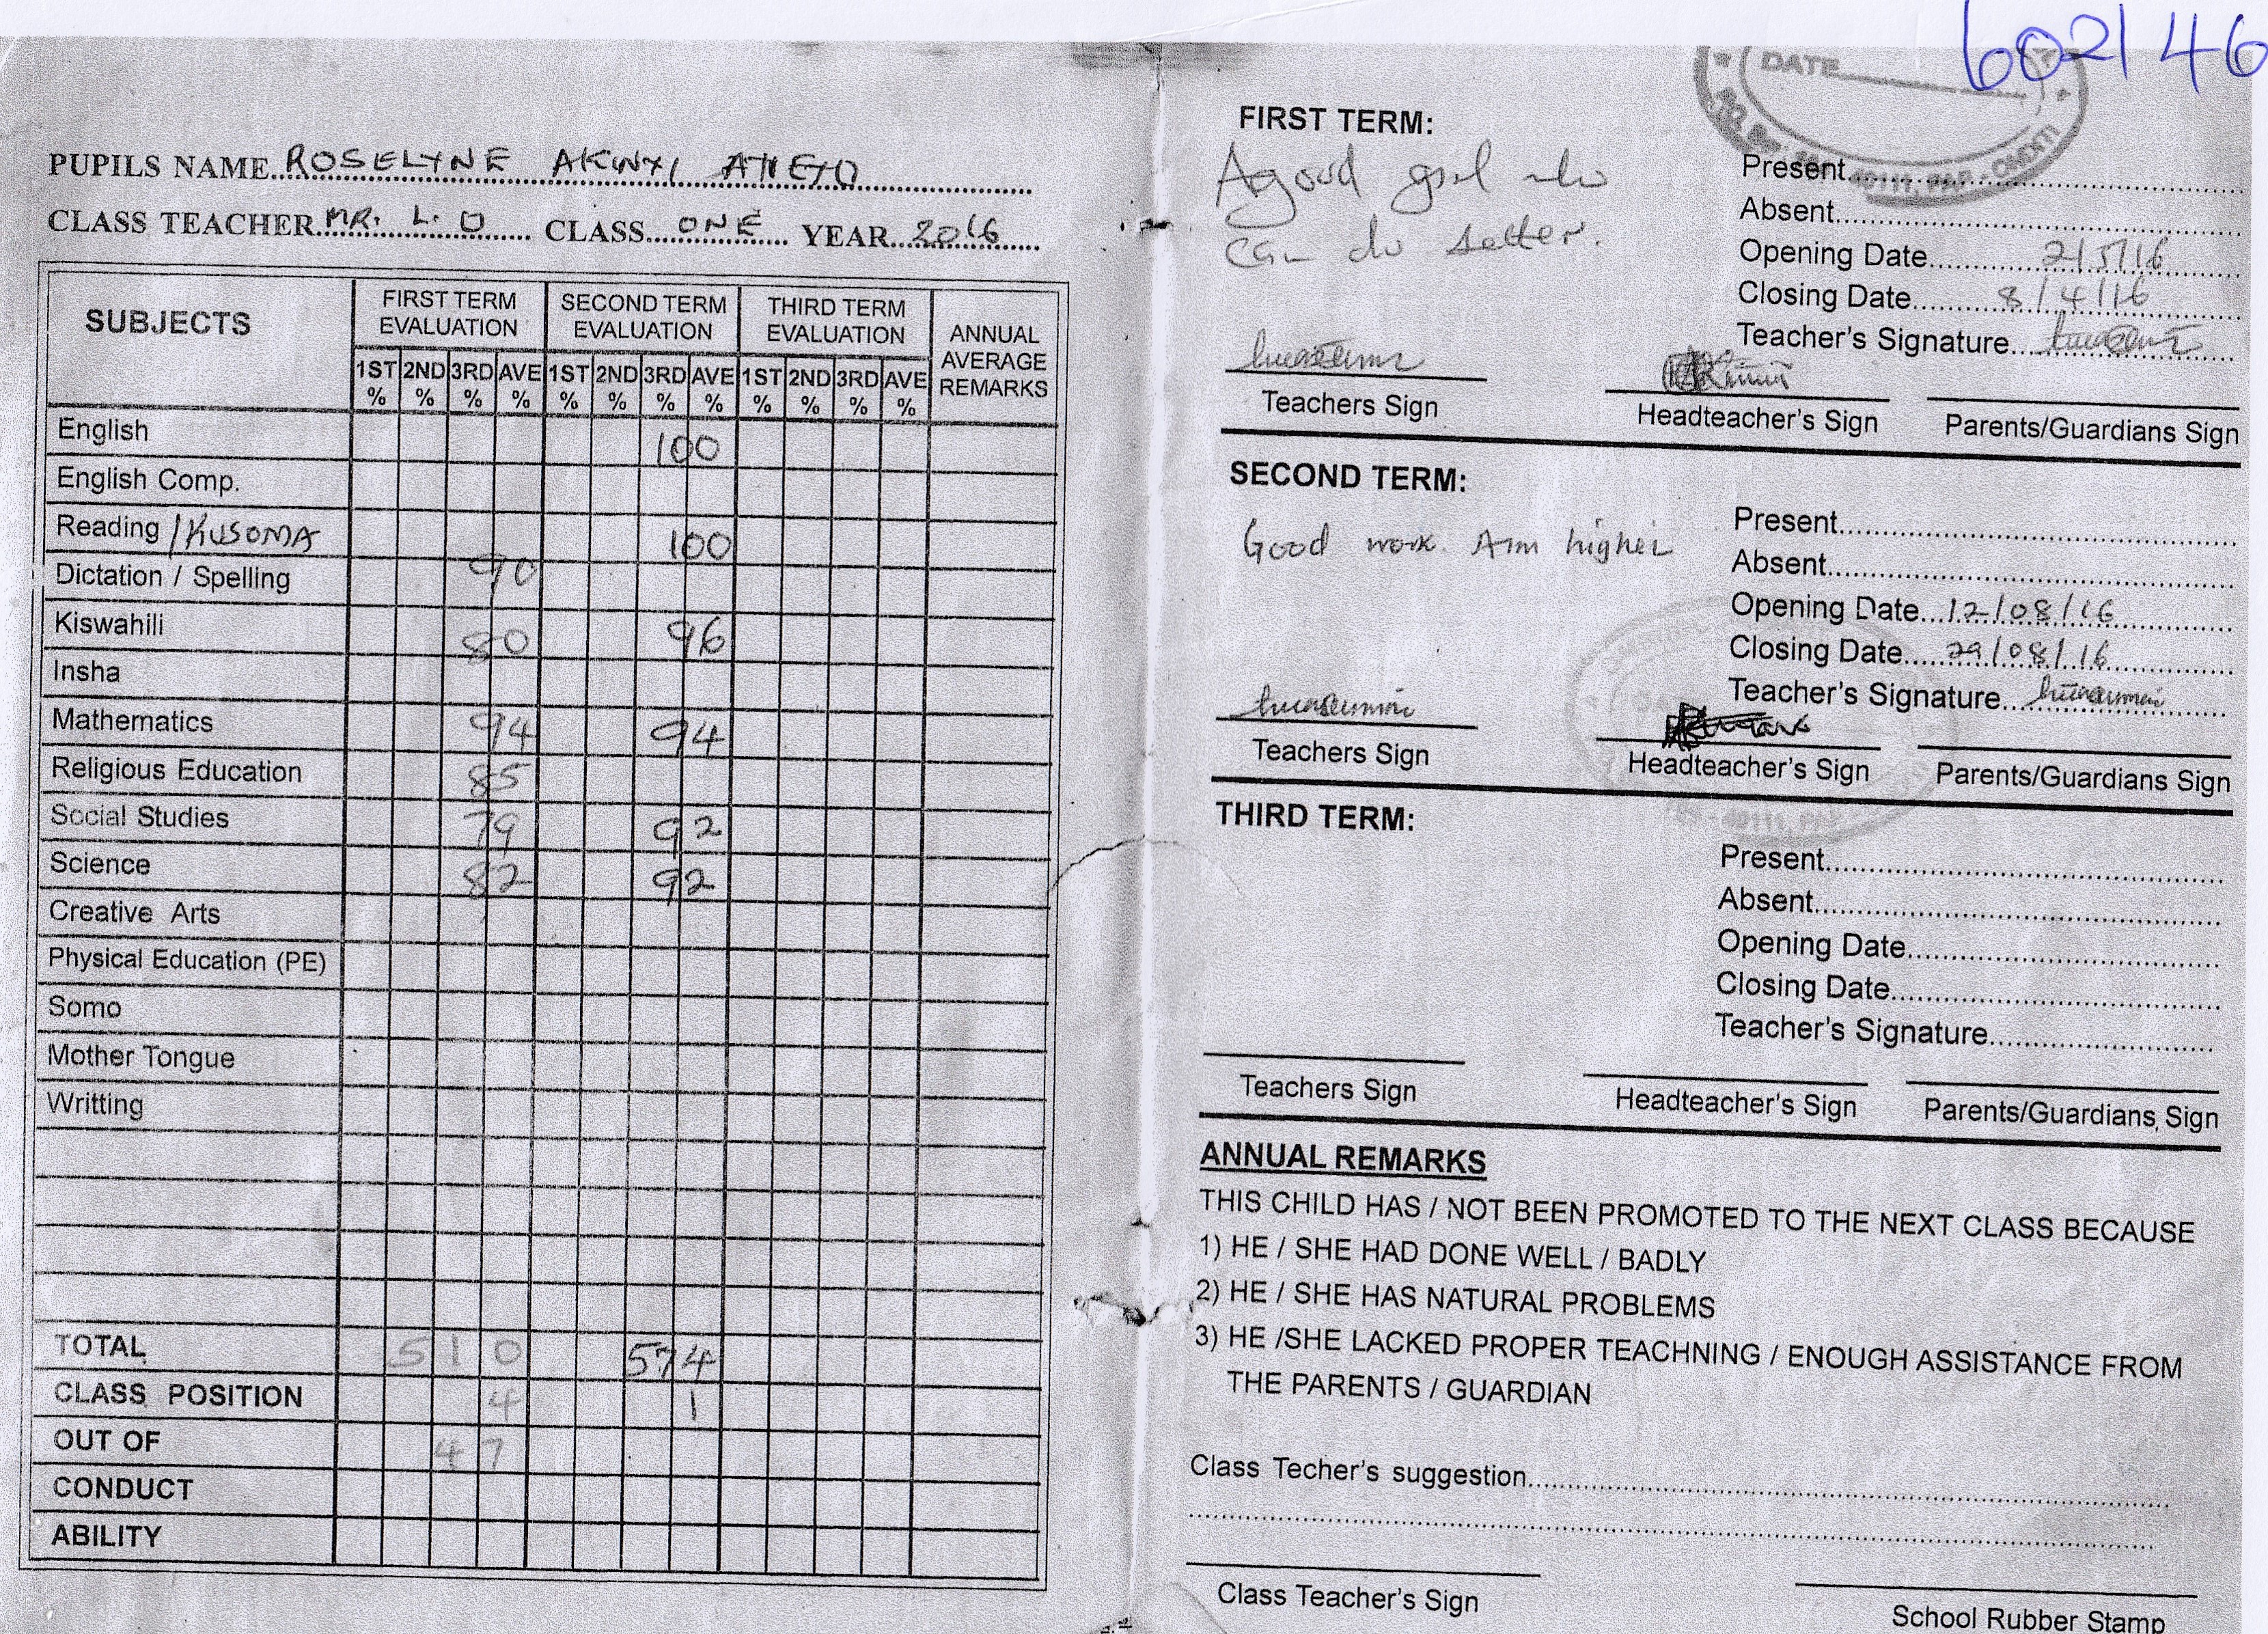 602146
PUPILS NAME ROSELYNE AKINYI ATIENO
CLASS TEACHER MR. L. O CLASS ONE YEAR 2016
SUBJECTS
FIRST TERM EVALUATION
SECOND TERM EVALUATION
THIRD TERM EVALUATION
ANNUAL AVERAGE REMARKS
1ST % 2ND % 3RD % AVE % 1ST % 2ND % 3RD % AVE % 1ST % 2ND % 3RD % AVE %
English 100
English Comp.
Reading /KUSOMA 90 100
Dictation / Spelling
Kiswahili 80 96
Insha
Mathematics 94 94
Religious Education 85
Social Studies 79 92
Science 82 92
Creative Arts
Physical Education (PE)
Somo
Mother Tongue
Writting
TOTAL 510 574
CLASS POSITION 4 1
OUT OF 47
CONDUCT
ABILITY
DATE
40111, PAP - ONDITI
FIRST TERM:
A good girl who
can do better.
Present
Absent
Opening Date 2/5/16
Closing Date 8/4/16
Teacher's Signature
Teachers Sign
Headteacher's Sign
Parents/Guardians Sign
SECOND TERM:
Good work. Aim higher
Present
Absent
Opening Date 12/08/16
Closing Date 29/08/16
Teacher's Signature
Teachers Sign
Headteacher's Sign
Parents/Guardians Sign
40111, PAP
THIRD TERM:
Present
Absent
Opening Date
Closing Date
Teacher's Signature
Teachers Sign
Headteacher's Sign
Parents/Guardians Sign
ANNUAL REMARKS
THIS CHILD HAS / NOT BEEN PROMOTED TO THE NEXT CLASS BECAUSE
1) HE / SHE HAD DONE WELL / BADLY
2) HE / SHE HAS NATURAL PROBLEMS
3) HE /SHE LACKED PROPER TEACHNING / ENOUGH ASSISTANCE FROM
THE PARENTS / GUARDIAN
Class Techer's suggestion
Class Teacher's Sign
School Rubber Stamp